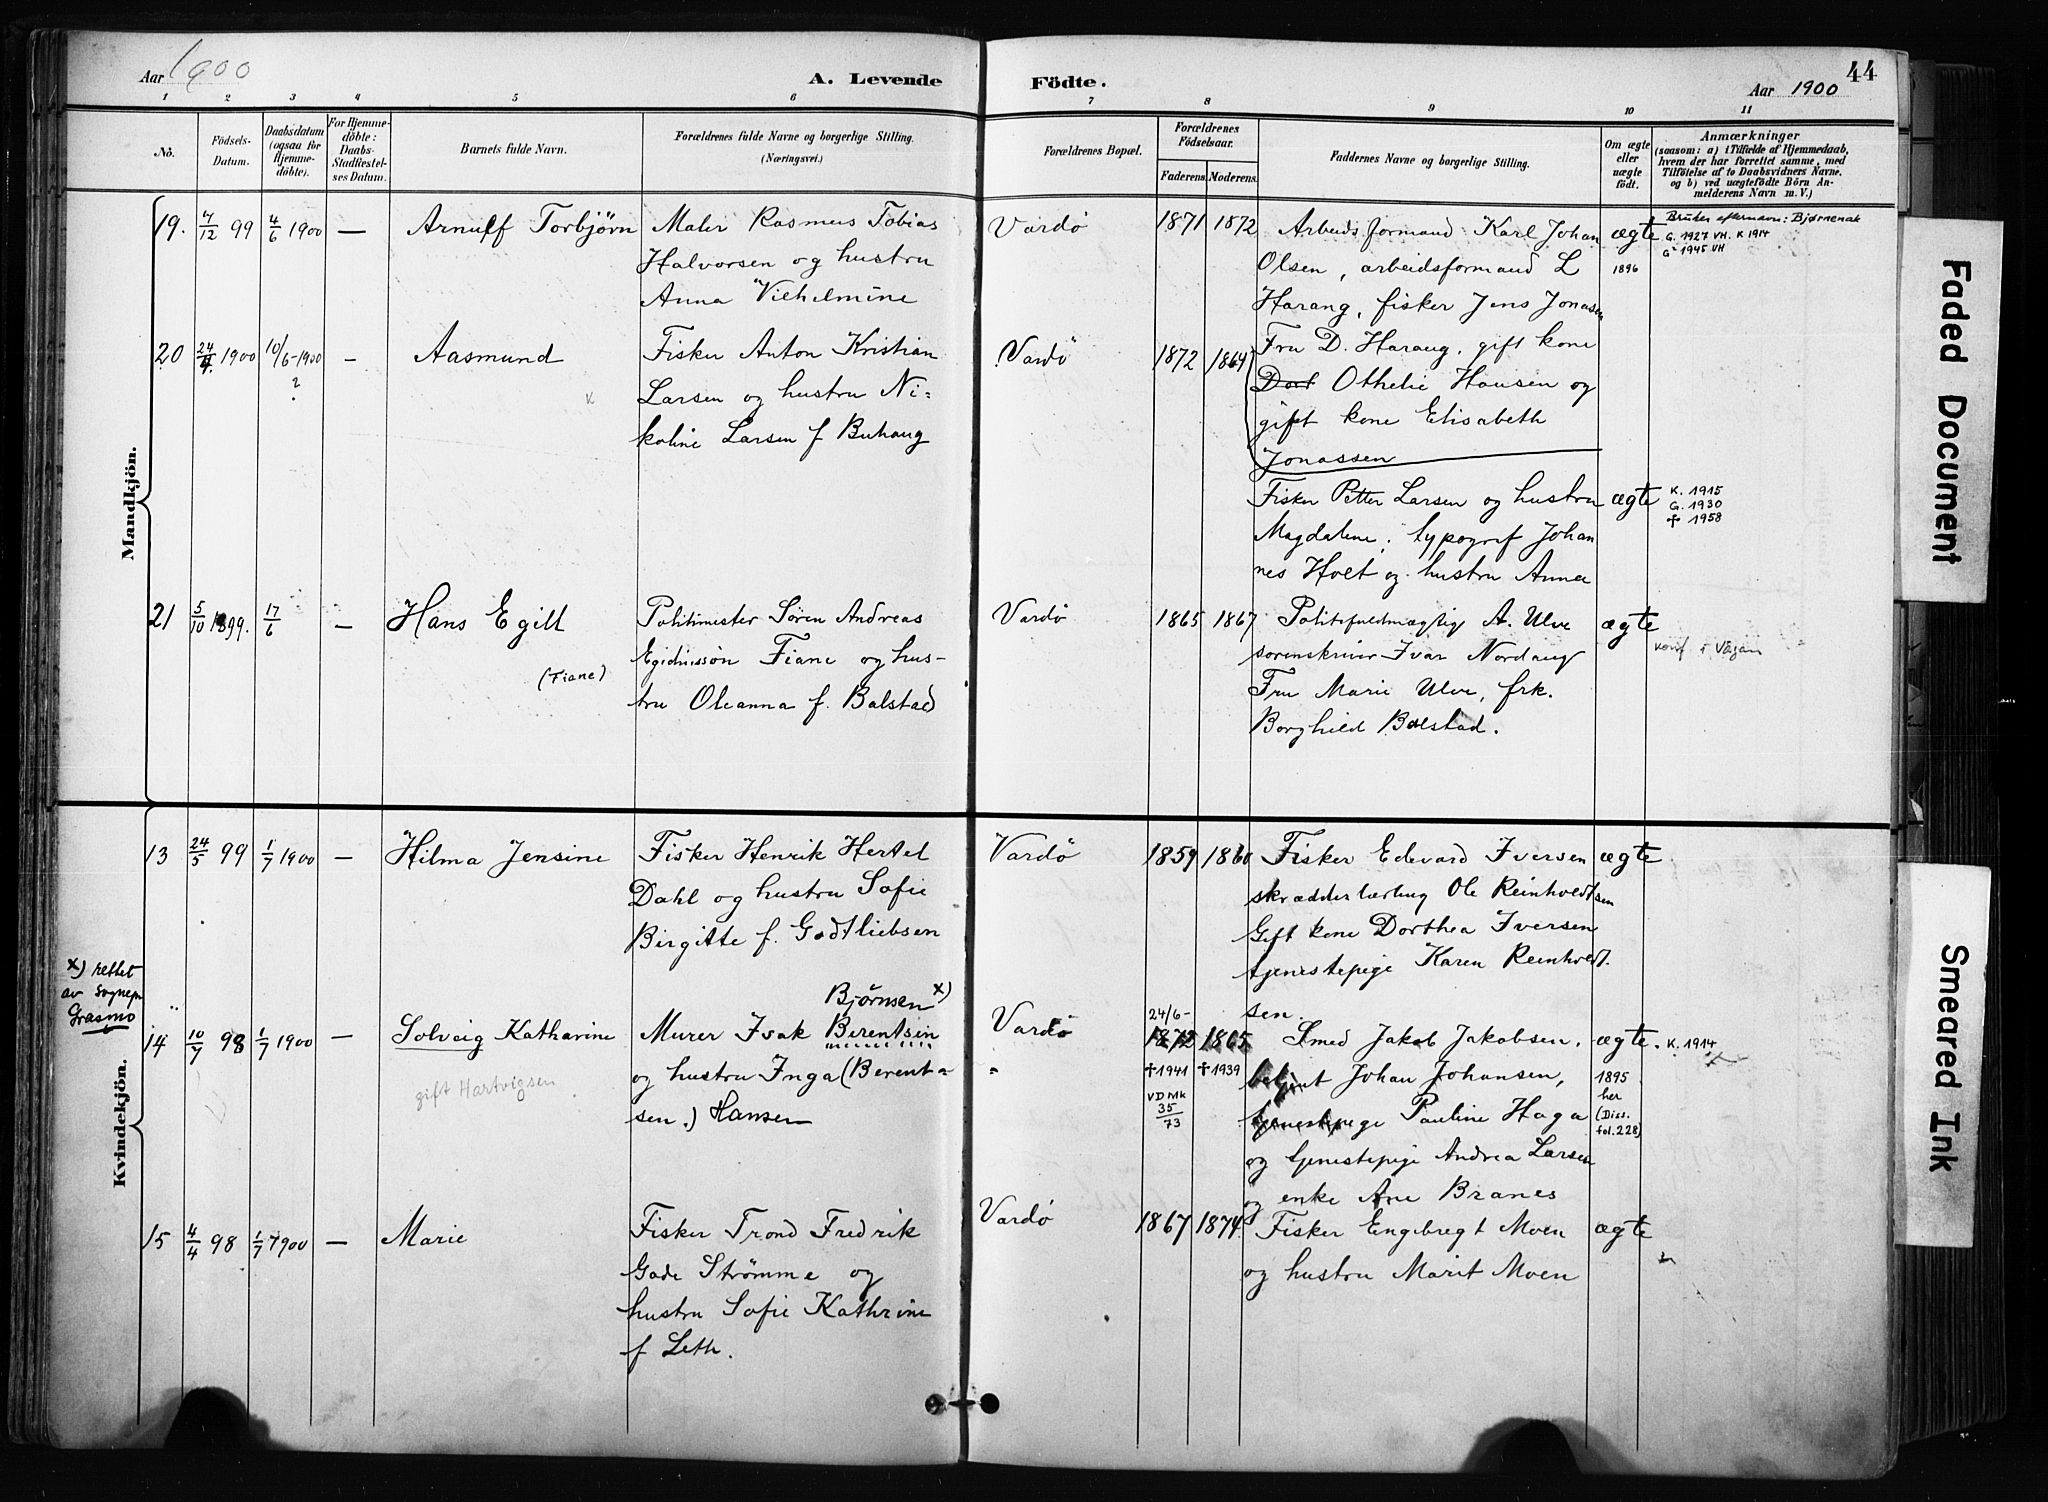 Aar 1900
A. Levende
Födte.
44
Aar 1900
1 2 3 4 5 6 7 8 9 10 11
No.
Födsels-
Datum.
Daabsdatum
(ogsaa for
Hjemme-
döbte).
For Hjemme-
döbte:
Daabs-
Stadfæstel-
ses Datum.
Barnets fulde Navn.
Forældrenes fulde Navne og borgerlige Stilling.
(Næringsvei.)
Forældrenes Bopæl.
Forældrenes
Födselsaar.
Faderens.
Moderens.
Faddernes Navne og borgerlige Stilling.
Om ægte
eller
uægte
födt.
Anmærkninger
(saasom: a) i Tilfælde af Hjemmedaab,
hvem der har forrettet samme, med
Tilföielse af to Daabsvidners Navne.
og b) ved uægtefödte Börn An-
melderens Navn m. V.)
Mandkjön.
19. 7/12 99 4/6 1900 — Arnulf Torbjörn
Maler Rasmus Tobias
Halvorsen og hustru
Anna Vilhelmine
Vardö
1871 1872
Arbeidsformand Karl Johan
Olsen, arbeidsformand L
Harang, fisker Jens Jonasen
Fru D. Harang, gift kone
Othelie Hansen og
gift kone Elisabeth
Jonassen
ægte
1896
Bruker efternavn: Bjørnenak
G. 1927 VH. K 1914
G 1945 VH
20 24/4 1900 10/6-1900 — Aasmund
?
Fisker Anton Kristian
Larsen og hustru Ni=
koline Larsen f Buhaug
Vardö
1872 1864
Fisker Petter Larsen og hustru
Magdalene, typograf Johan
nes Holt og hustru Anna
ægte
K. 1915
G. 1930
✝ 1958
21 5/10 1899. 17/6 — Hans Egill
(Fiane)
Politimester Sören Andreas
Egidiussön Fiane og hus-
tru Oleanna f. Balstad
Vardö
1865 1867
Politifuldmægtig A. Ulve
sorenskriver Ivar Nordaug
Fru Marie Ulve, frk.
Borghild Balstad.
ægte
konf. i Vågan
Kvindekjön.
13 24/5 99 1/7 1900 — Hilma Jensine
Fisker Henrik Hertel
Dahl og hustru Sofie
Birgitte f. Godtliebsen
Vardö
1859 1860
Fisker Edevard Iversen
skrædderlærling Ole Reinholdtsen
Gift kone Dorthea Iversen
tjenestepige Karen Reinholdt
sen.
ægte
x) rettet
av Sognepr
Grasmo
14 10/7 98 1/7 1900 — Solveig Katharine
gift Hartvigsen
Bjørnsen x)
Murer Isak Berentsen
og hustru Inga (Berent=
sen.) Hansen
Vardö
24/6-
1872 1865
✝1941 ✝1939
VD MK
35/73
Smed Jakob Jakobsen,
betjent Johan Johansen,
tjenestepige Pauline Haga
og tjenestepige Andrea Larsen
og enke Ane Branes
ægte
1895
her
(Diss.
fol. 228)
K. 1914
15 4/4 98 1/7 1900 — Marie
Fisker Trond Fredrik
Gade Strömme og
hustru Sofie Kathrine
f Leth.
Vardö
1867 1874
Fisker Engebregt Moen
og hustru Marit Moen
ægte
Faded Document
Smeared Ink